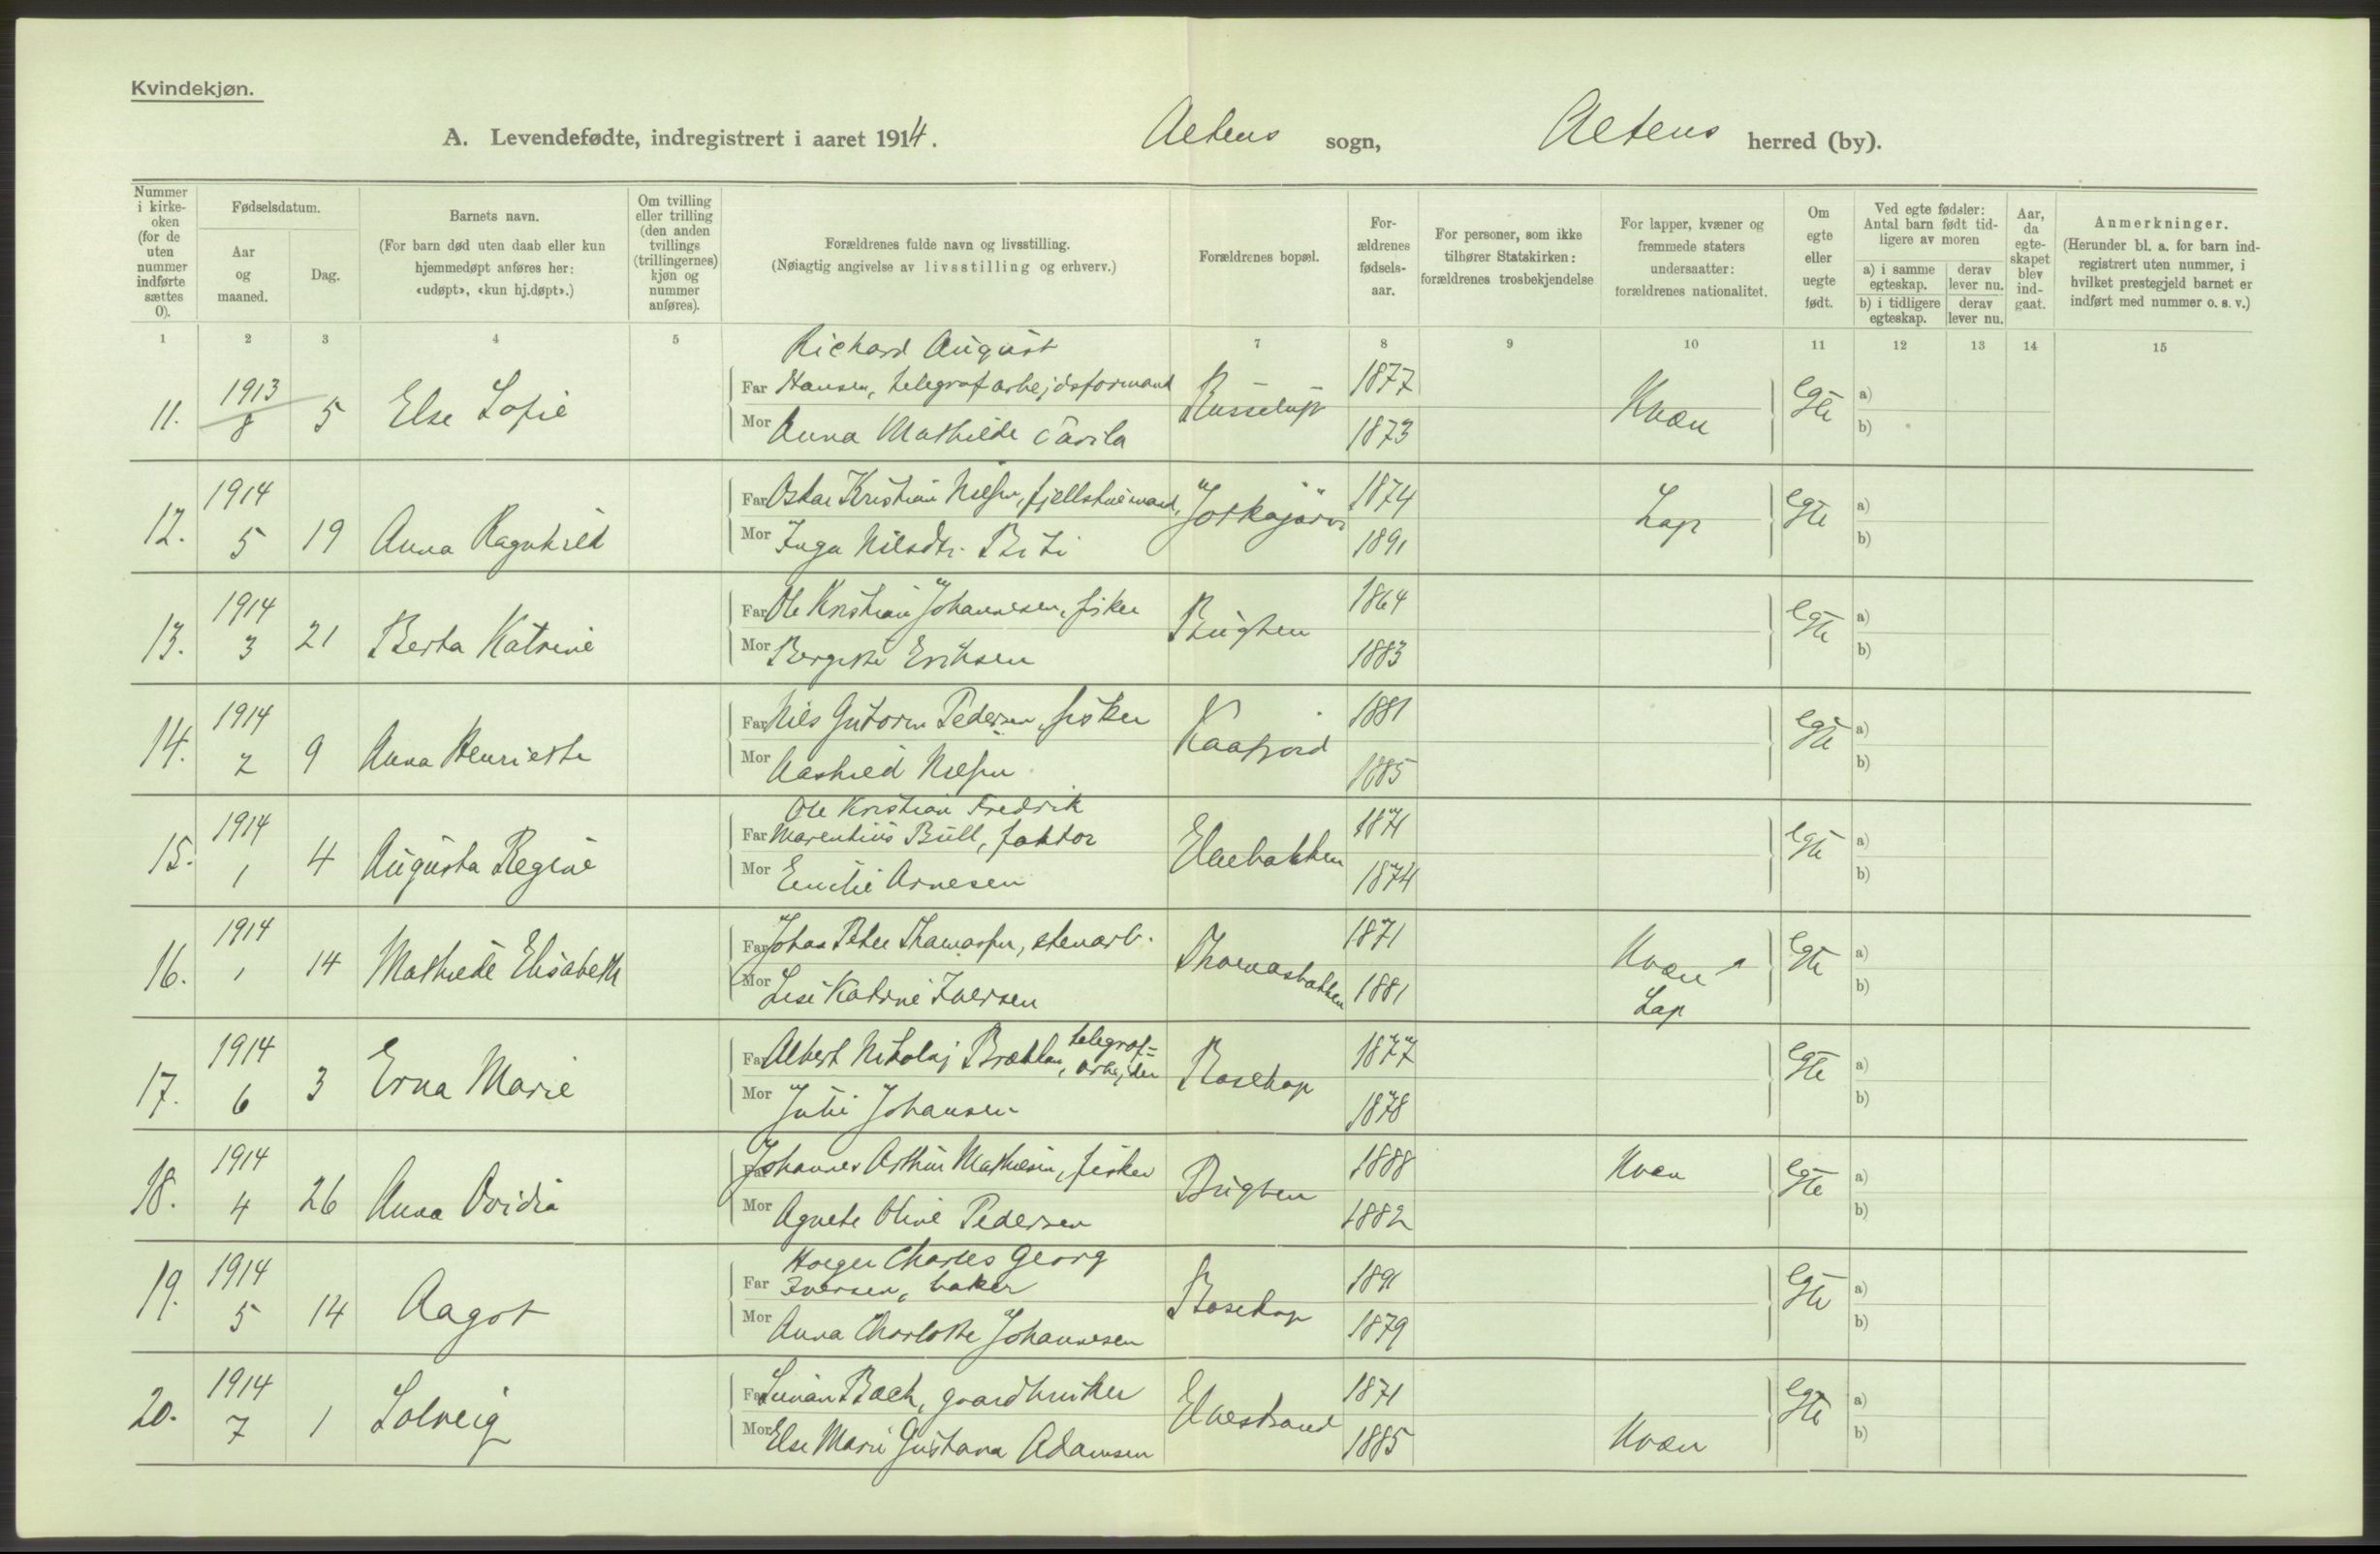 Kvindekjøn.
A. Levendefødte, indregistrert i aaret 1914. Altens sogn, Altens herred (by).
Nummer i kirke- oken (for de uten nummer indførte sættes 0).
Fødselsdatum.
Aar og maaned.
Dag.
Barnets navn.
(For barn død uten daab eller kun hjemmedøpt anføres her: «udøpt», «kun hj.døpt».)
Om tvilling eller trilling (den anden tvillings (trillingernes) kjøn og nummer anføres).
Forældrenes fulde navn og livsstilling.
(Nøiagtig angivelse av livsstilling og erhverv.)
Forældrenes bopæl.
For- ældrenes fødsels- aar.
For personer, som ikke tilhører Statskirken: forældrenes trosbekjendelse
For lapper, kvæner og fremmede staters undersaatter: forældrenes nationalitet.
Om egte eller uegte født.
Ved egte fødsler: Antal barn født tid- ligere av moren
a) i samme egteskap.
derav lever nu.
b) i tidligere egteskap.
derav lever nu.
Aar, da egte- skapet blev ind- gaat.
Anmerkninger.
(Herunder bl. a. for barn ind- registrert uten nummer, i hvilket prestegjeld barnet er indført med nummer o. s. v.)
1 2 3 4 5 7 8 9 10 11 12 13 14 15
Richard August
11. 1913 8 5 Else Sofie Far Hansen, telegrafarbejdsformand 1877 Kvæn Egte a)
Mor Anna Mathilde 1873 b)
12. 1914 5 19 Anna Ragnhild Far Oskar Kristian Nilsen, fjellstuemand, Joskajärvi 1874 Lap Egte a)
Mor Inga Nilsdtr. Biti 1891 b)
13. 1914 3 21 Berta Katrine Far Ole Kristian Johannesen, fisker Bugten 1864 Egte a)
Mor Bergitte Eriksen 1883 b)
14. 1914 2 9 Anna Henriette Far Nils Guttorm Pedersen, fisker Kaafjord 1881 Egte a)
Mor Aashild Nilsen 1885 b)
Ole Kristian Fredrik
15. 1914 1 4 Augusta Regine Far Marentius Bull, faktor Elvebakken 1871 Egte a)
Mor Emilie Arnesen 1874 b)
16. 1914 1 14 Mathilde Elisabeth Far Johan Peter Thomassen, stenarb. Thomasbakken 1871 Kvæn Egte a)
Mor Lise Katrine Iversen 1881 Lap b)
17. 1914 6 3 Erna Marie Far Albert Nikolaj Brækkan, telegraf= arbejder Bosekop 1877 Egte a)
Mor Julie Johansen 1878 b)
18. 1914 4 26 Anna Ovidia Far Johannes Arthur Mathisen, fisker Bugten 1888 Kvæn Egte a)
Mor Agnete Oline Pedersen 1882 b)
Holger Charles Georg
19. 1914 5 14 Aagot Far Iversen, baker Bosekop 1891 Egte a)
Mor Anna Charlotte Johannesen 1879 b)
20. 1914 7 1 Solveig Far Bach, gaardbruker Elvestrand 1871 Egte a)
Mor Else Marie Gustava Adamsen 1885 Kvæn b)